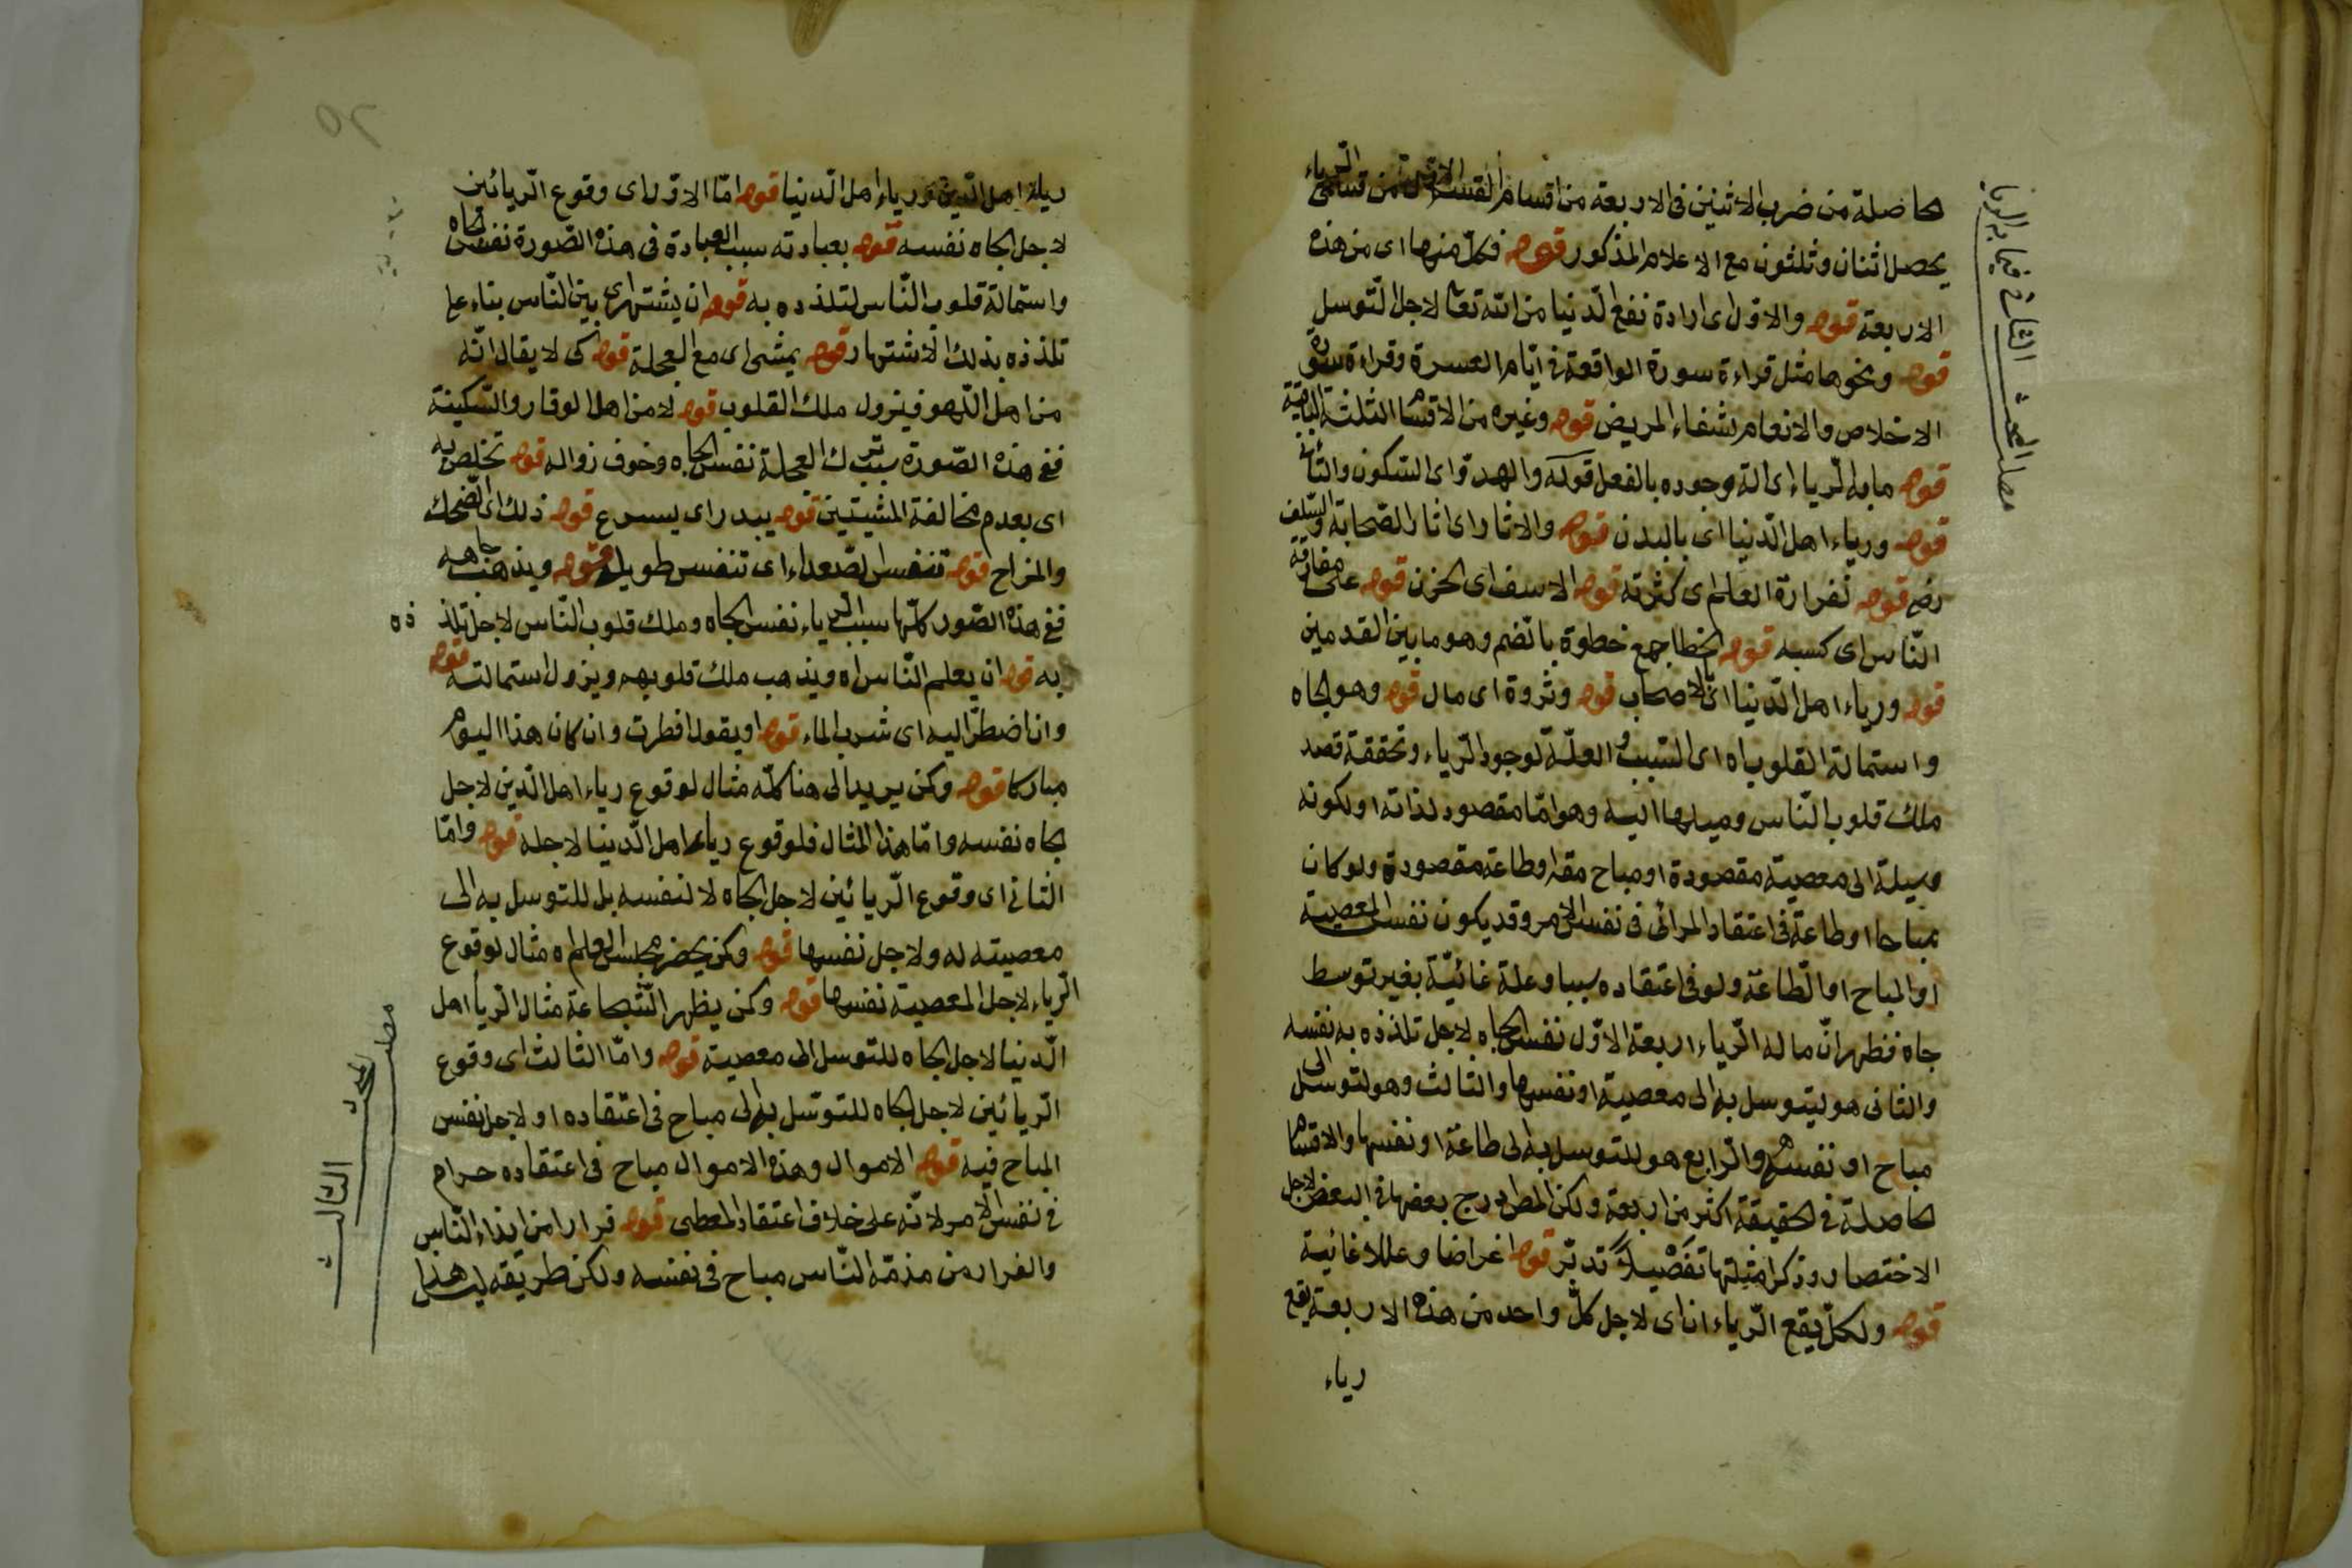 حاصلة من ضرب الاثنين فى الاربعة من اقسام القسم من قسمى الرياء
يحصل اثنان وثلثون مع الاعلام المذكور قوله فكل منها اى من هذه
الاربعة قوله والاول اى ارادة نفع الدنيا من الله تعا لاجل التوسل
قوله ونحوها مثل قراءة سورة الواقعة فى ايام العسرة وقراءة سورة
الاخلاص والانعام لشفاء المريض قوله وغيره من الاقسام الثلثة الباقية
قوله ما به الرياء اى الة وجوده بالفعل قوله والهدو اى السكون والتأنى
قوله ورياء اهل الدنيا اى بالبدن قوله والاثار اى اثار الصحابة والسلف
رضه قوله لغزارة العلم اى كثرته قوله الاسف اى الحزن قوله على مفارقة
الناس اى كسبه قوله الخطا جمع خطوة بالضم وهو ما بين القدمين
قوله ورياء اهل الدنيا اى بالاصحاب قوله وثروة اى مال قوله وهو الجاه
واستمالة القلوب اه اى السبب والعلة لوجود الرياء وتحققه قصد
ملك قلوب الناس وميلها اليه وهو اما مقصود لذاته او لكونه
وسيلة الى معصية مقصودة او مباح مقه او طاعة مقصودة ولو كان
مباحا او طاعة فى اعتقاد المرائى فى نفس الامر وقد يكون نفس المعصية
او المباح او الطاعة ولو فى اعتقاده سببا وعلة غائية بغير توسط
جاه فظهر ان ما له الرياء اربعة الاول نفس الجاه لاجل تلذذه به نفسه
والثانى هو ليتوسل به الى معصية او نفسها والثالث وهو لتوسل الى
مباح او نفسه والرابع هو للتوسل به الى طاعة او نفسها والاقسام
الحاصلة فى الحقيقة اكثر من اربعة ولكن المص درج بعضها فى البعض لاجل
الاختصار وذكر امثلتها تفصيلا تدبر قوله اغراضا وعللا غائية
قوله ولكل يقع الرياءان اى لاجل كل واحد من هذه الاربعة يقع
رياء
رياء اهل الدين ورياء اهل الدنيا قوله اما الاول اى وقوع الريائين
لاجل الجاه نفسه قوله بعبادته سبب العبادة فى هذه الصورة نفس الجاه
واستمالة قلوب الناس لتلذذه به قوله ان يشتهر اى بين الناس بناء على
تلذذه بذلك الاشتهار قوله يمشى اى مع العجلة قوله كى لا يقال انه
من اهل اللهو فيزول ملك القلوب قوله لا من اهل الوقار والسكينة
ففى هذه الصورة سبب ترك العجلة نفس الجاه وخوف زواله قوله تخلص به
اى بعدم مخالفة المشيتين قوله يبدر اى يسرع قوله ذلك اى الضحك
والمزاح قوله تنفس الصعداء اى تنفس طويل قوله ويذهب جاهه
ففى هذه الصور كلها سبب الرياء نفس الجاه وملك قلوب الناس لاجل تلذ ذه
به قوله ان يعلم الناس اه ويذهب ملك قلوبهم ويزول استمالته قوله
وان اضطر اليه اى شرب الماء قوله او يقول افطرت وان كان هذا اليوم
مباركا قوله وكمن يريد الى هنا كله مثال لوقوع رياء اهل الدين لاجل
جاه نفسه واما هذا المثال فلوقوع رياء اهل الدنيا لاجله قوله واما
الثانى اى وقوع الريائين لاجل الجاه لا لنفسه بل للتوسل به الى
معصيته له ولاجل نفسها قوله وكمن يحضر مجلس العلم اه مثال لوقوع
الرياء لاجل المعصية نفسها قوله وكمن يظهر الشجاعة مثال الرياء اهل
الدنيا لاجل الجاه للتوسل الى معصية قوله واما الثالث اى وقوع
الريائين لاجل الجاه للتوسل به الى مباح فى اعتقاده او لاجل نفس
المباح فيه قوله الاموال وهذه الاموال مباح فى اعتقاده حرام
فى نفس الامر لانه على خلاف اعتقاد المعطى قوله فرارا من ايذاء الناس
والفرار من مذمة الناس مباح فى نفسه ولكن طريقه ليس هذا
مطلب المبحث الثالث